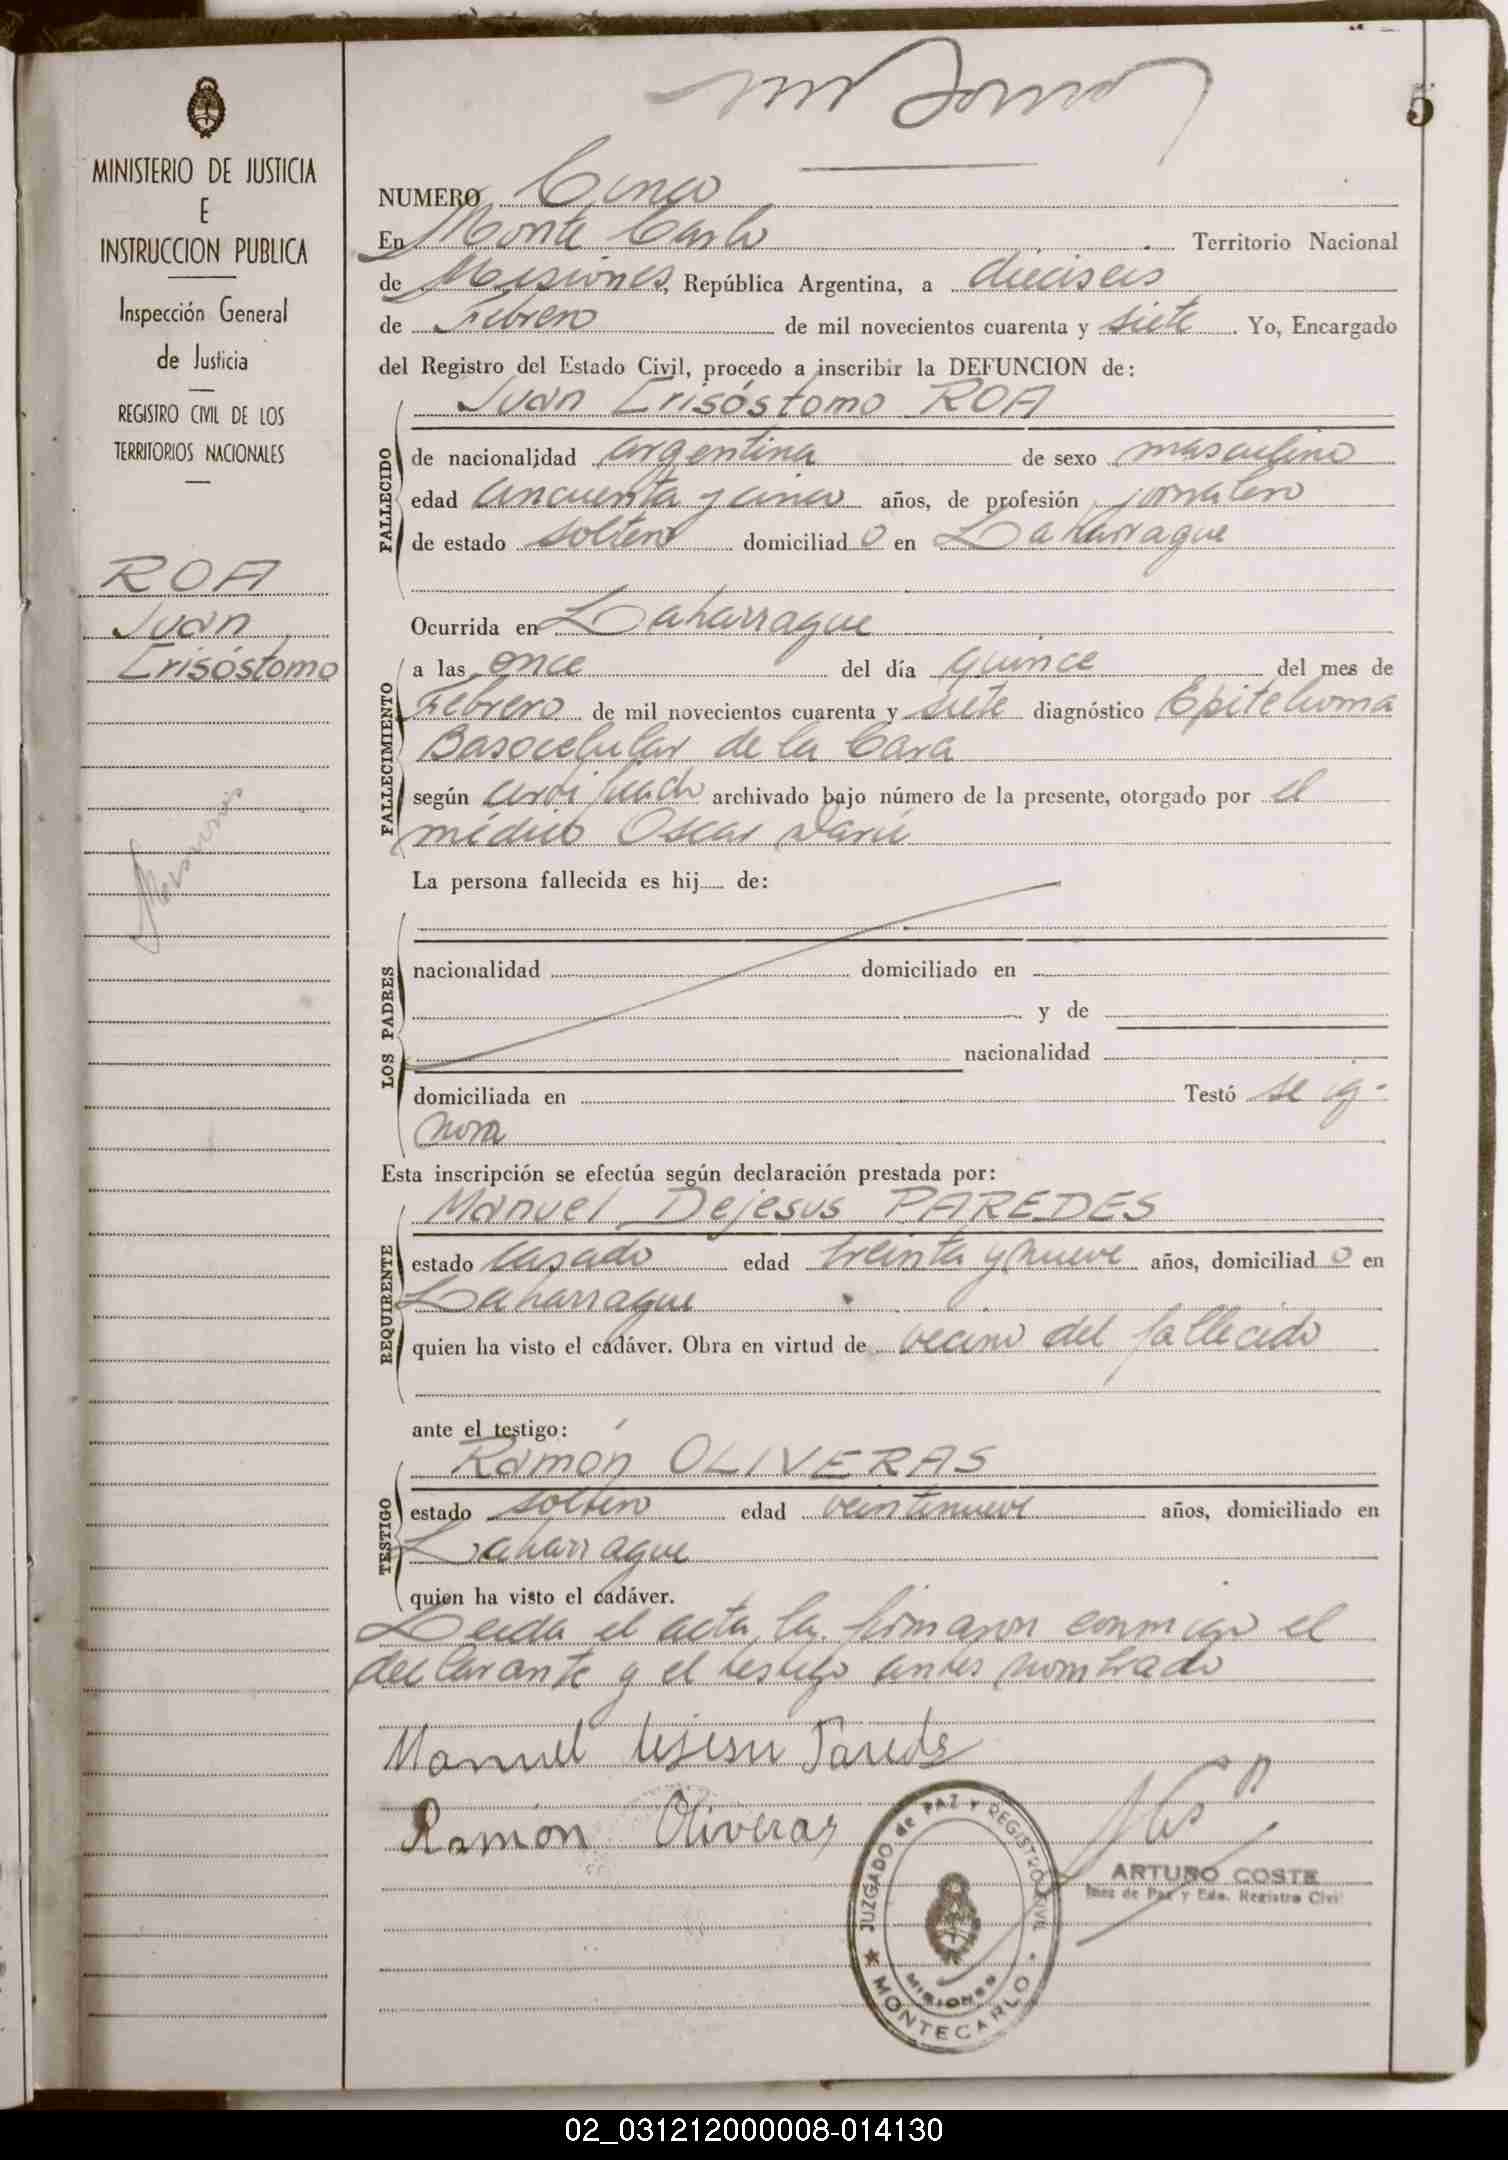 5
MINISTERIO DE JUSTICIA
E
INSTRUCCION PUBLICA
Inspección General
de Justicia
REGISTRO CIVIL DE LOS
TERRITORIOS NACIONALES
ROA
Juan
Crisóstomo
Misiones
NUMERO Cinco
En Monte Carlo Territorio Nacional
de Misiones, República Argentina, a dieciseis
de Febrero de mil novecientos cuarenta y siete. Yo, Encargado
del Registro del Estado Civil, procedo a inscribir la DEFUNCION de:
Juan Crisóstomo ROA
FALLECIDO
de nacionalidad argentina de sexo masculino
edad cincuenta y cinco años, de profesión jornalero
de estado soltero domiciliado en Laharrague
Ocurrida en Laharrague
FALLECIMIENTO
a las once del día quince del mes de
Febrero de mil novecientos cuarenta y siete diagnóstico Epitelioma
Basocelular de la Cara
según certificado archivado bajo número de la presente, otorgado por el
médico Oscar Darú
La persona fallecida es hij de:
LOS PADRES
nacionalidad domiciliado en
y de
nacionalidad
domiciliada en Testó se ig-
nora
Esta inscripción se efectúa según declaración prestada por:
Manuel Dejesus PAREDES
REQUIRENTE
estado casado edad treinta y nueve años, domiciliado en
Laharrague
quien ha visto el cadáver. Obra en virtud de vecino del fallecido
ante el testigo:
Ramón OLIVERAS
TESTIGO
estado soltero edad veintinueve años, domiciliado en
Laharrague
quien ha visto el cadáver.
Leida el acta, la firmaron conmigo el
declarante y el testigo antes nombrado
Manuel Paredes
Ramón Oliveras
JUZGADO de PAZ Y REGISTRO CIVIL
MISIONES
MONTECARLO
ARTURO COSTE
Juez de Paz y Edo. Registro Civil
02_031212000008-014130